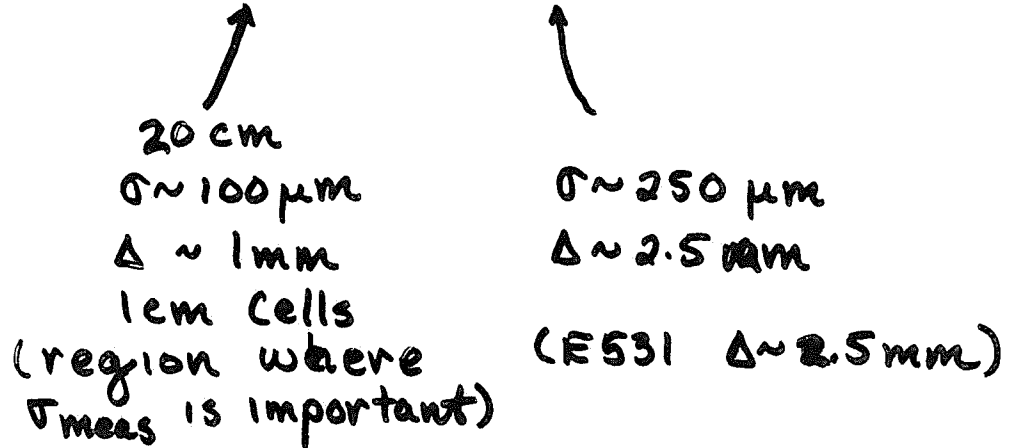 20 cm
σ ~ 100 μm
Δ ~ 1mm
1cm Cells
(region where
σmeas is important)
σ ~ 250 μm
Δ ~ 2.5 mm
(E531 Δ ~ 2.5mm)